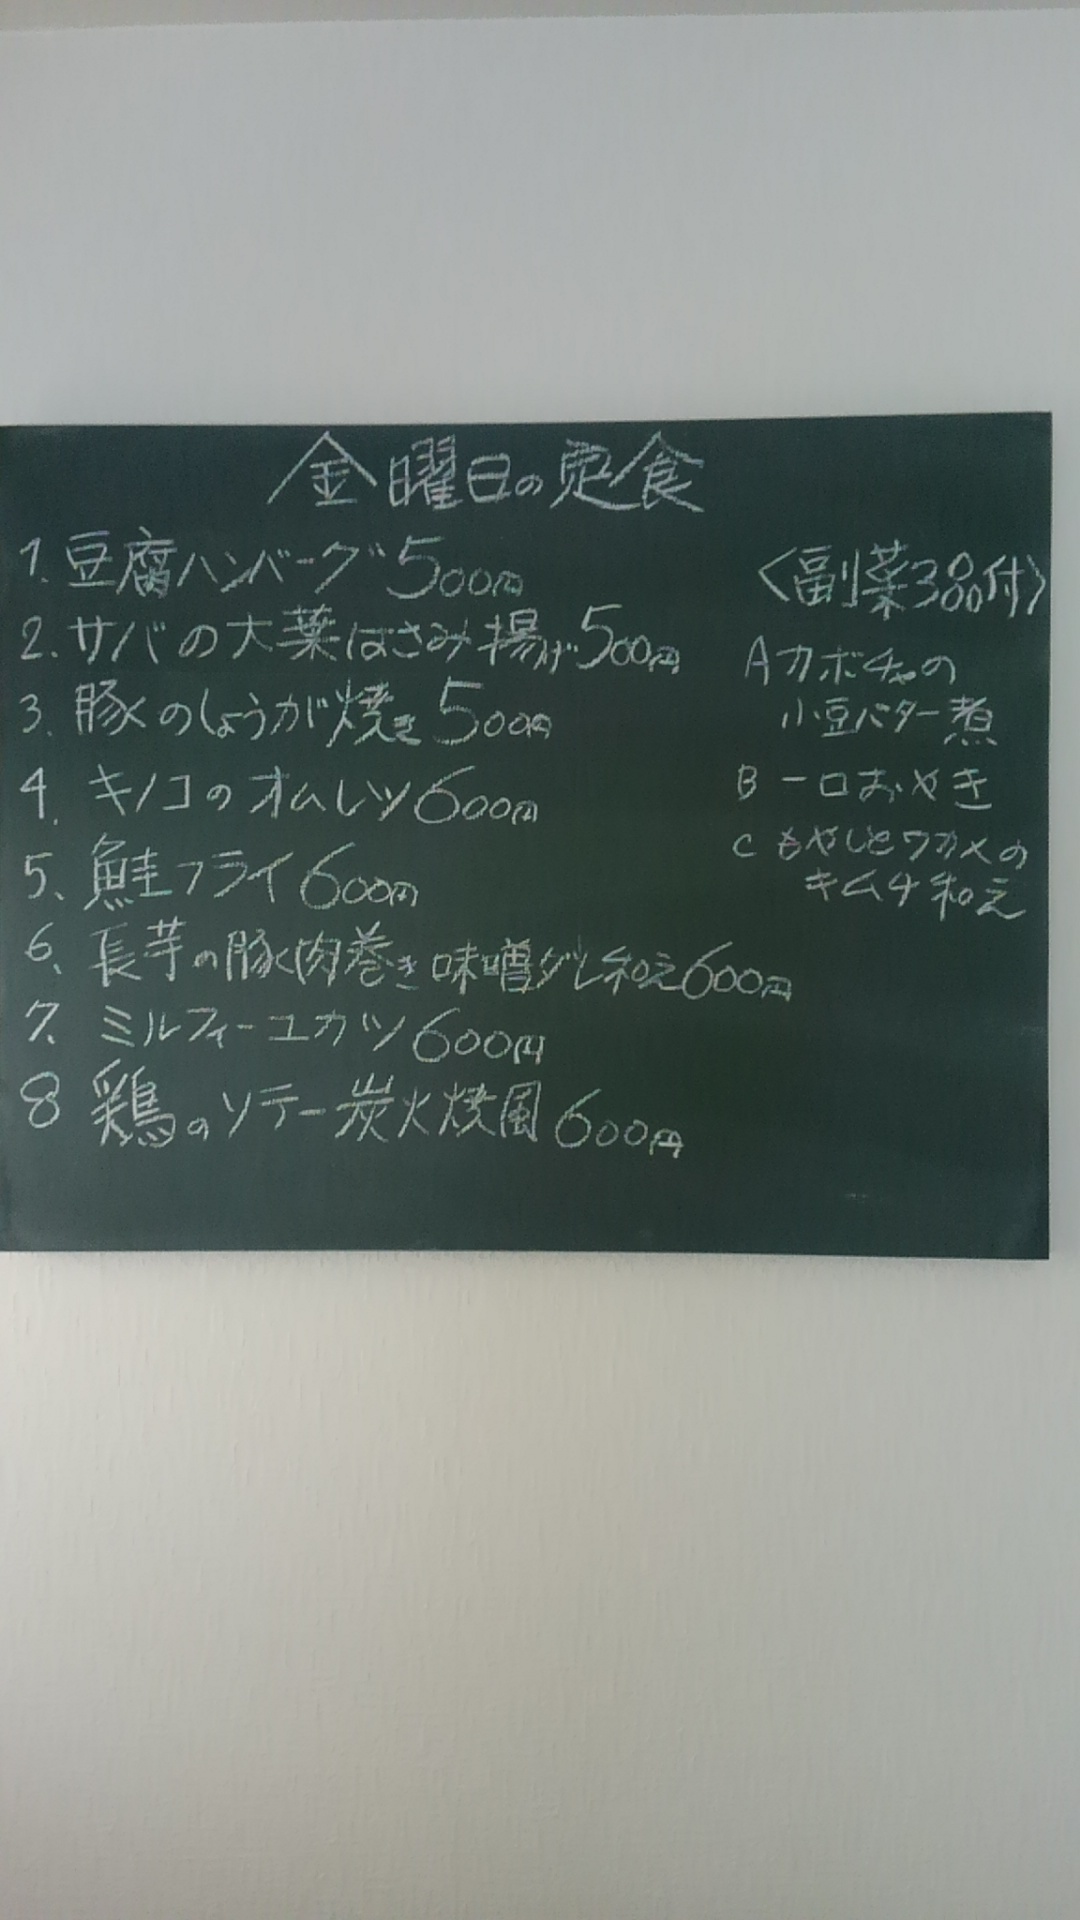 金曜日の定食
1. 豆腐ハンバーグ 500円
2. サバの大葉はさみ揚げ 500円
3. 豚のしょうが焼き 500円
4. キノコのオムレツ 600円
5. 鮭フライ 600円
6. 長芋の豚肉巻き味噌ダレ和え 600円
7. ミルフィーユカツ 600円
8 鶏のソテー炭火焼風 600円
<副菜3品付>
A カボチャの
小豆バター煮
B 一口おやき
C もやしとワカメの
キムチ和え